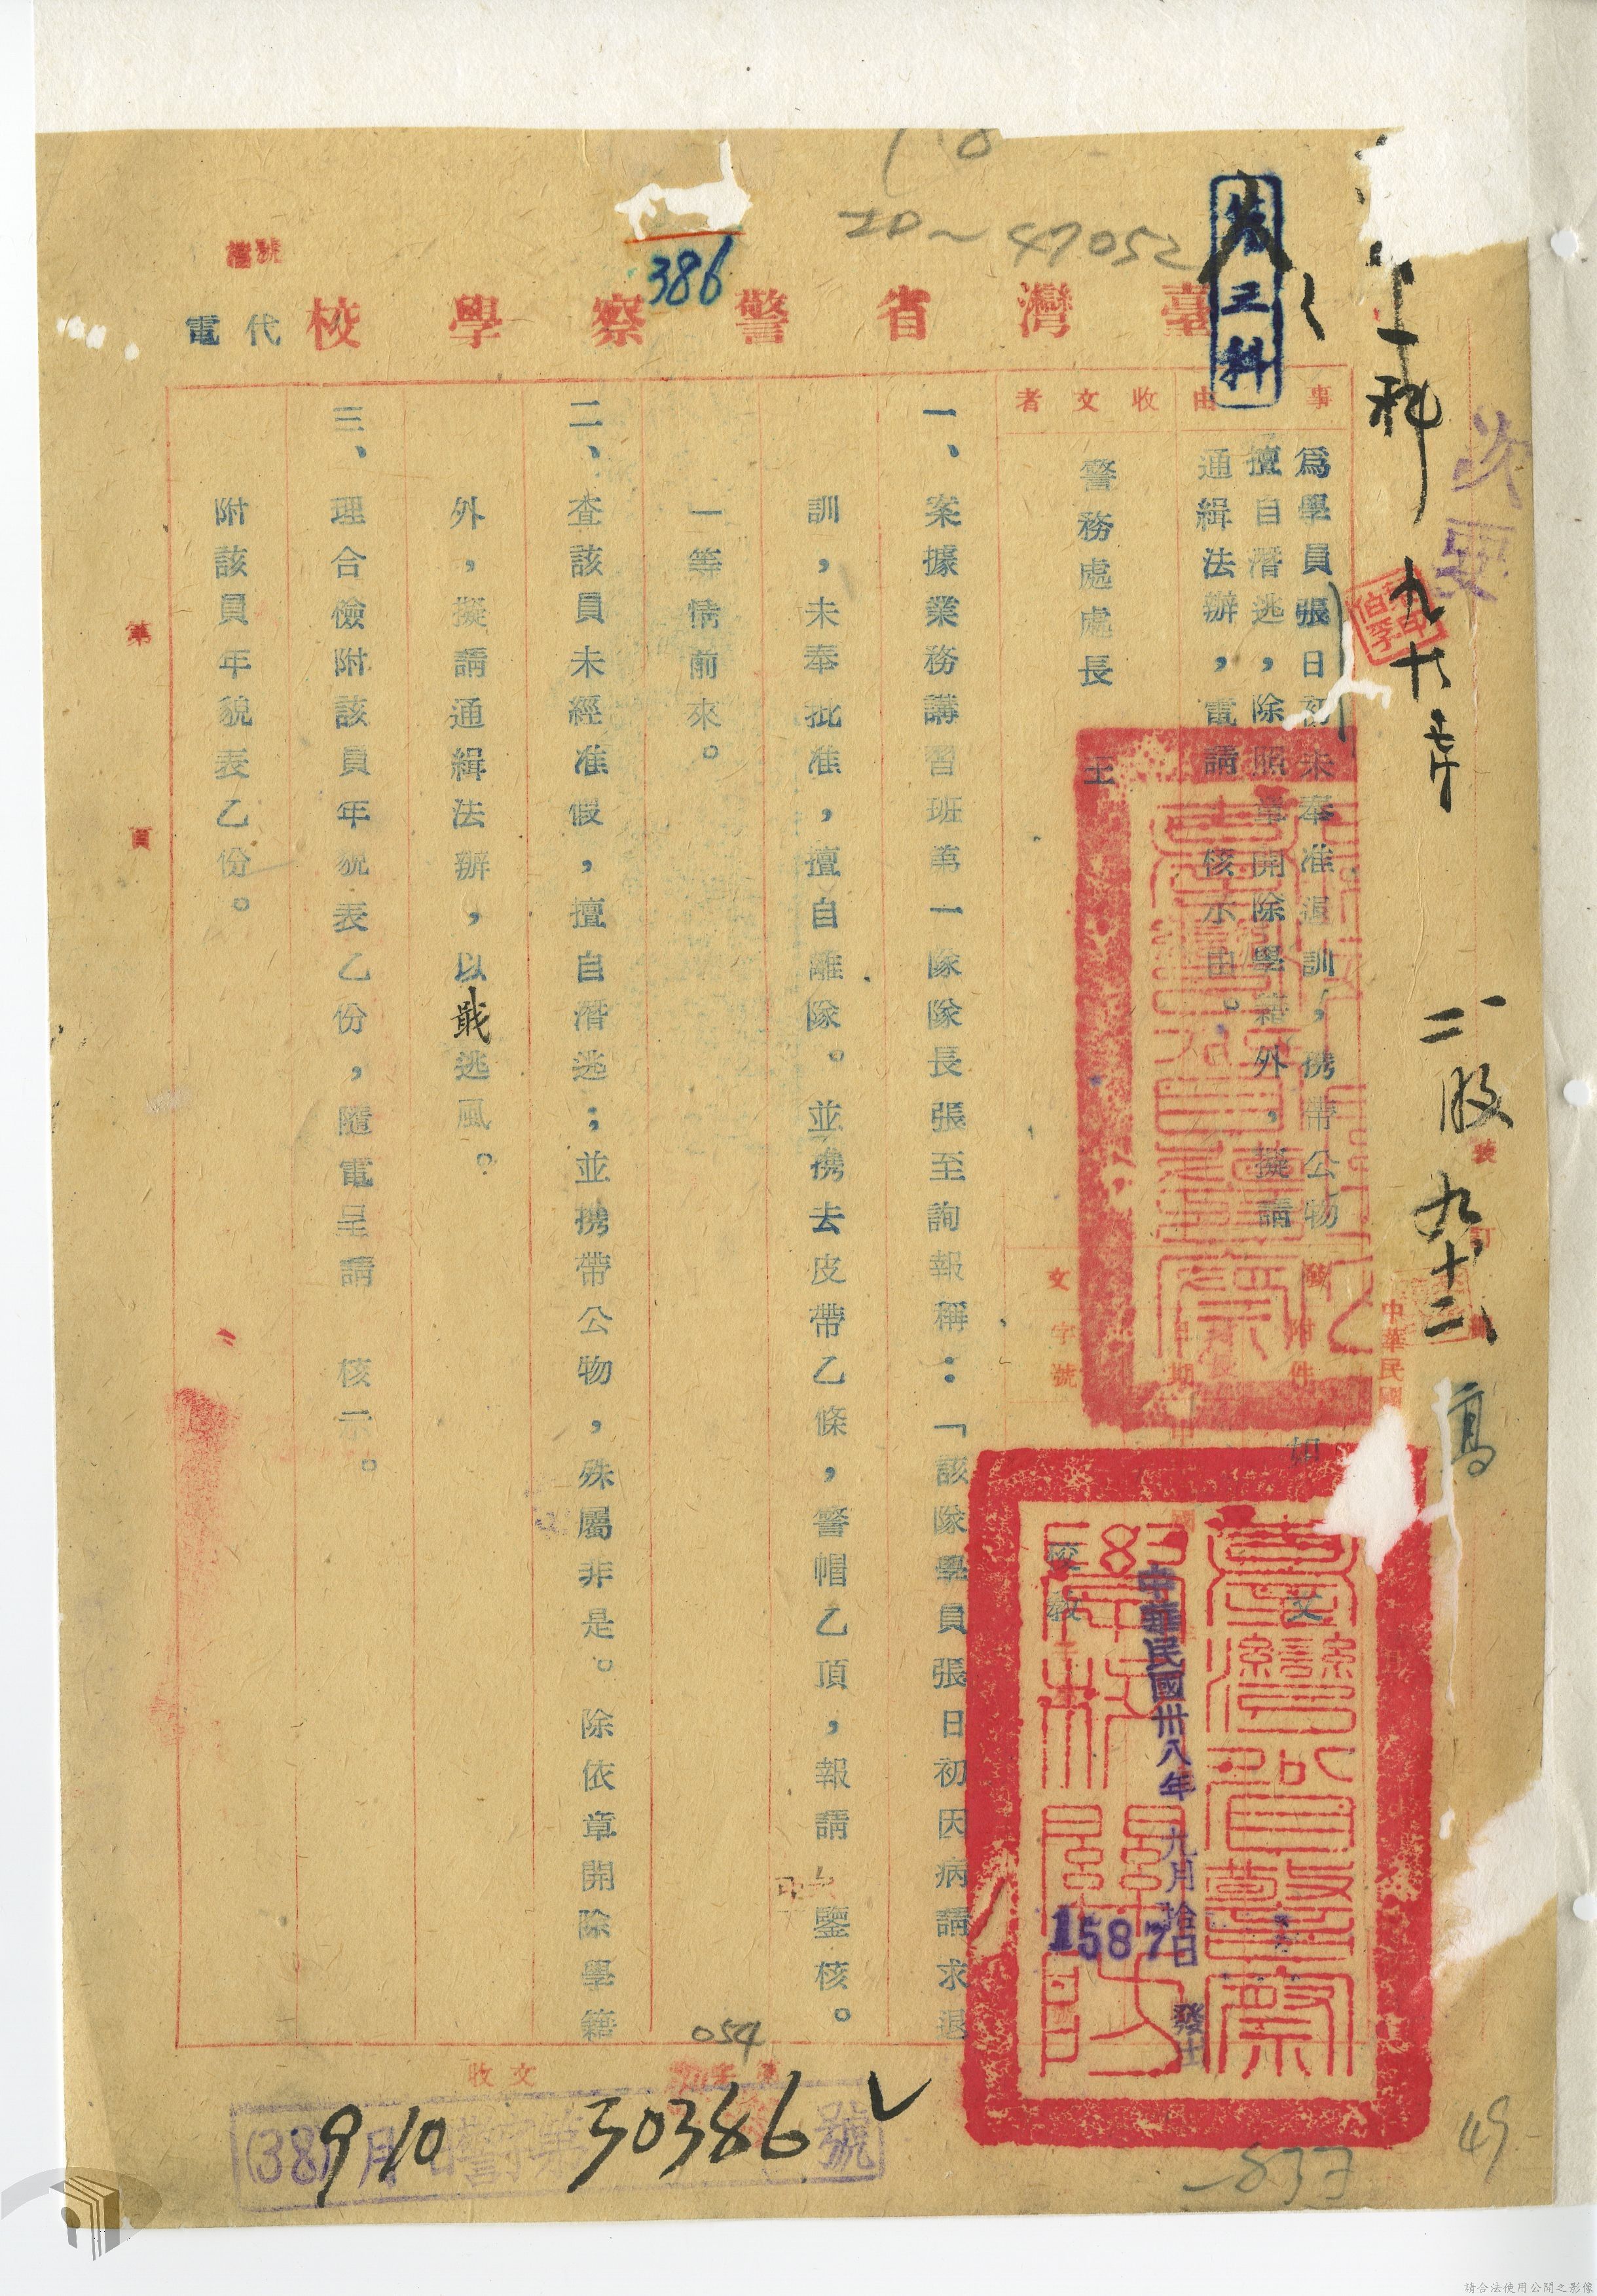 臺灣省警察學校代電
386
ID~47052
第三科
次要
事由
為學員張日初未奉准退訓，携帶公物
擅自潛逃，除照章開除學籍外，擬請
通緝法辦，電請核示由。
收文者
警務處處長 王
附件 如文
中華民國
中華民國卅八年九月拾日發出
文字號
校教
1587
一、案據業務講習班第一隊隊長張至詢報稱：「該隊學員張日初因病請求退
訓，未奉批准，擅自離隊。並携去皮帶乙條，警帽乙頂，報請 鑒核。
一等情前來。
二、查該員未經准假，擅自潛逃；並携帶公物，殊屬非是。除依章開除學籍
外，擬請通緝法辦，以戢逃風。
三、理合檢附該員年貌表乙份，隨電呈請 核示。
附該員年貌表乙份。
第
頁
收文
054
(38)9月10日警字第30386號
49
請合法使用公開之影像